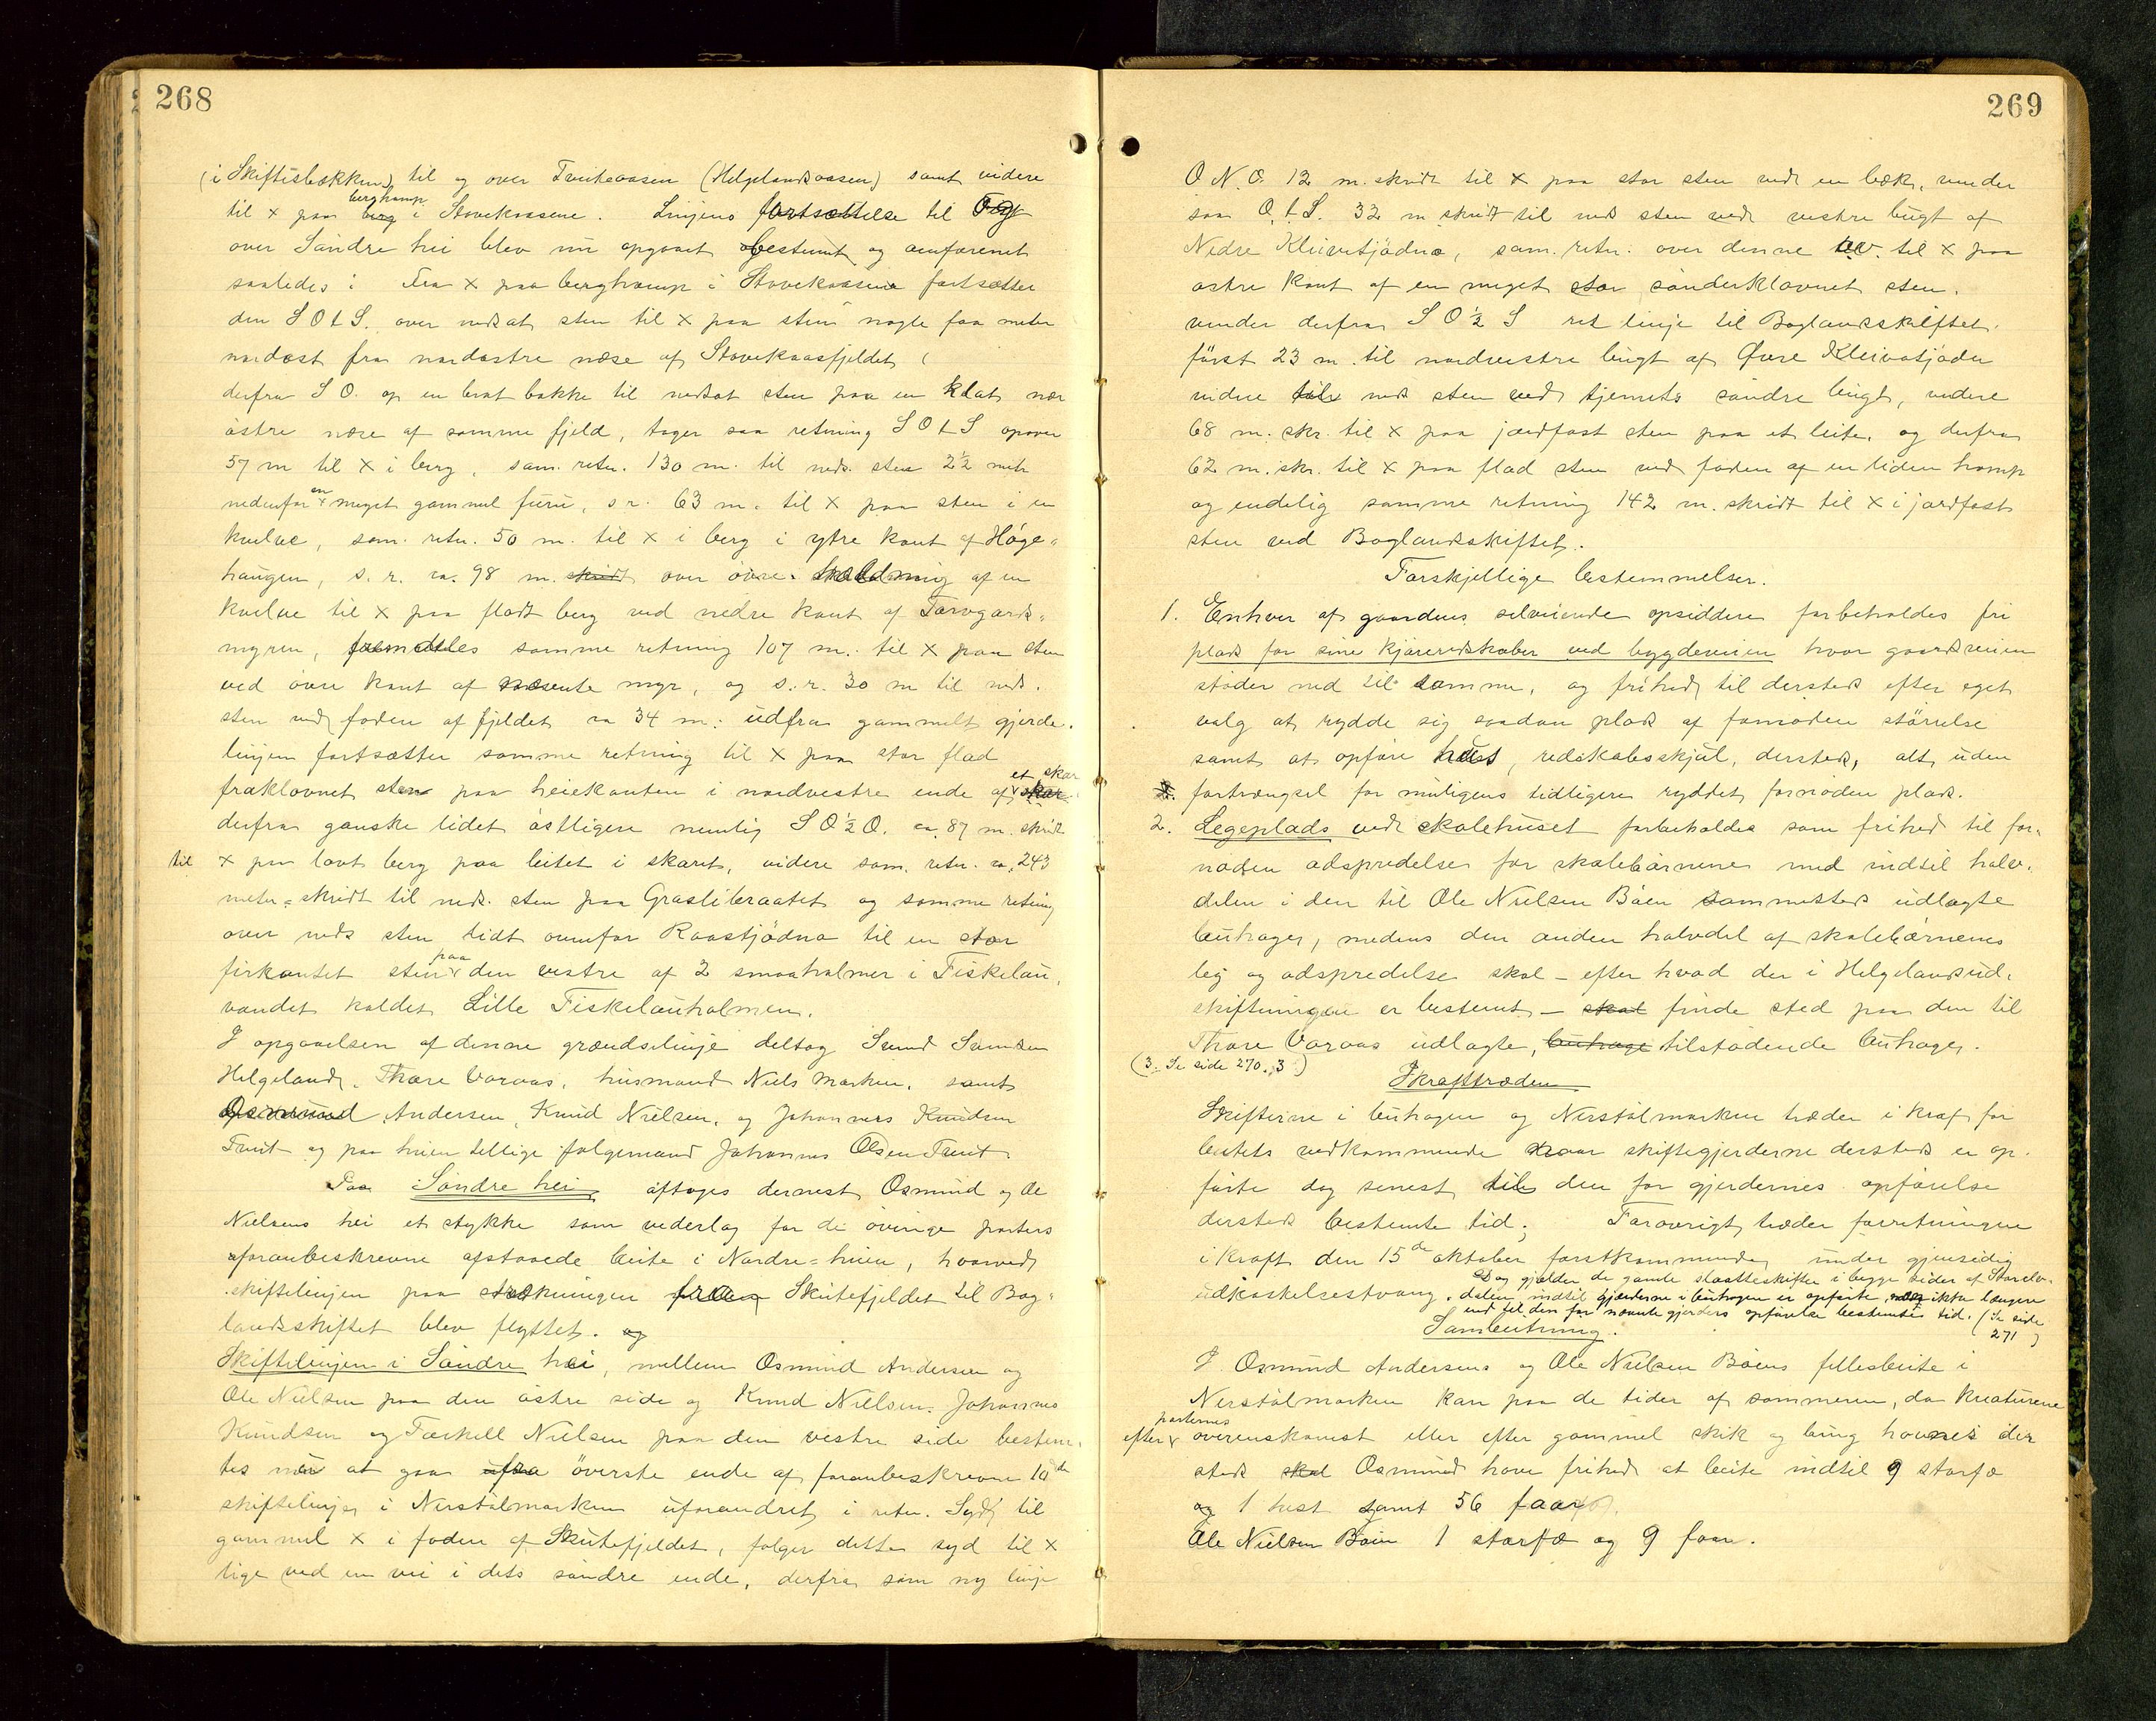 268
(i Skiftisbækken) til og over Tveiteaasen (Helgelandsaasen) samt videre
berghamp
til x paa berg i Stovekaasene. Linjens fortsættelse til Øst
over Søndre hei blev nu opgaaet, bestemt og omforenet
saaledes: Fra x paa berghamp i Stovekaasene fortsætter
den S O t S. over nedsat sten til x paa sten nogle faa meter
nordøst fra nordøstre næse af Stovekaasfjeldet,
derfra S O. op en brat bakke til nedsat sten paa en klat nær
østre næse af samme fjeld, tager saa retning S O t S opover
57 m til x i berg, sam. retn. 130 m. til neds. sten 2½ mtr
en
nedenfor x meget gammel furu, s r. 63 m. til x paa sten i en
kvelve, sam. retn. 50 m. til x i berg i ytre kant af Høge-
haugen, s. r. ca. 98 m. skridt over øvre helding af en
kvelve til x paa fladt berg ved nedre kant af Torvgards-
myren, fremdeles samme retning 107 m. til x paa sten
ved øvre kant af nævnte myr, og s. r. 30 m til neds.
sten ved foden af fjeldet ca 34 m. udfra gammelt gjerde.
linjen fortsætter samme retning til x paa stor flad
et skar
fraklovnet sten paa heiekanten i nordvestre ende af x skar.
derfra ganske lidet østligere nemlig S O ½ O. ca. 87 m. skridt
til x paa lavt berg paa leitet i skaret, videre sam. retn. ca. 243
meter-skridt til neds. sten paa Graslibraatet og samme retning
over neds sten lidt ovenfor Raastjødna til en stor
paa
firkantet sten x den vestre af 2 smaaholmer i Fiskelau-
vandet kaldet Lille Fiskelauholmen.
I opgaaelsen af denne grændselinje deltog Svend Svendsen
Helgeland, Thore Voraas, husmand Niels Marken, samt
Osmund Andersen, Knud Nielsen, og Johannes Knudsen
Tveit og paa heien tillige følgemand Johannes Olsen Tveit.
Paa Søndre hei aftoges dernest Osmund og Ole
Nielsens hei et stykke som vederlag for de øvrige parters
foranbeskrevne afstaaede beite i Nordre-heien, hvorved
skiftelinjen paa strækningen fra Skutefjeldet til Bog-
landsskiftet blev flyttet. og
Skiftelinjen i Søndre hei, mellem Osmund Andersen og
Ole Nielsen paa den østre side og Knud Nielsen, Johannes
Knudsen og Tarkell Nielsen paa den vestre side bestem-
tes nu at gaa fra øverste ende af foranbeskrevne 10de
skiftelinje i Nerstølmarken uforandret i retn. Syd til
gammel x i foden af Skutefjeldet, følger dette syd til x
lige ved en vei i dets søndre ende, derfra som ny linje
269
O N. O. 12 m. skridt til x paa stor sten ved en bæk, vender
saa O. t S. 32 m skridt til neds sten ved vestre bugt af
Nedre Kleivetjødna, sam. retn. over denne til x paa
østre kant af en meget stor sønderklovnet sten.
vender derfra S O ½ S ret linje til Boglandsskiftet.
først 23 m. til nordvestre bugt af Øvre Kleivatjødn
videre til neds sten ved tjernets søndre bugt, videre
68 m. skr. til x paa jordfast sten paa et leite, og derfra
62 m. skr. til x paa flad sten ved foden af en liden hamp
og endelig samme retning 142 m. skridt til x i jordfast
sten ved Boglandsskiftet.
Forskjellige bestemmelser.
1. Enhver af gaardens selveiende opsiddere forbeholdes fri
plads for sine kjøreredskaber ved bygdeveien hvor gaardsveien
støder ned til samme, og frihed til dersteds efter eget
valg at rydde sig saadan plads af fornøden størrelse
samt at opføre hus, redskabsskjul, dersteds, alt uden
fortrængsel for muligens tidligere ryddet fornøden plads.
2. Legeplads ved skolehuset forbeholdes som frihed til for-
nøden adspredelse for skolebørnene med indtil halv-
delen i den til Ole Nielsen Bøen sammesteds udlagte
buhage, medens den anden halvdel af skolebørnenes
leg og adspredelse skal - efter hvad der i Helgelandsud-
skiftningen er bestemt - skal finde sted paa den til
Thore Voraas udlagte, buhage tilstødende buhage.
(3. Se side 270. 3)
Ikrafttræden
Skifterne i buhagen og Nerstølmarken træder i kraf for
beitets vedkommende naar skiftegjerderne dersteds er op-
førte dog senest til den for gjerdernes opførelse
dersteds bestemte tid. Forøvrigt træder forretningen
i kraft den 15de oktober førstkommende under gjensidig
Dog gjælder de gamle slaatteskifter i begge sider af Storelv-
udkaskelsestvang. dalen indtil gjerderne i buhagen er opførte, ikke længere
end til den for nævnte gjerders opførelse bestemte tid. (Se side
271)
Sambeitning.
I Osmund Andersens og Ole Nielsen Bøens fellesbeite i
Nerstølmarken kan paa de tider af sommeren, da kreaturene
parternes
efter x overenskomst eller efter gammel skik og brug havnes der
steds skal Osmund have frihed at beite indtil 9 storfæ
og 1 hest samt 56 faar.
Ole Nielsen Bøen 1 storfæ og 9 faar.